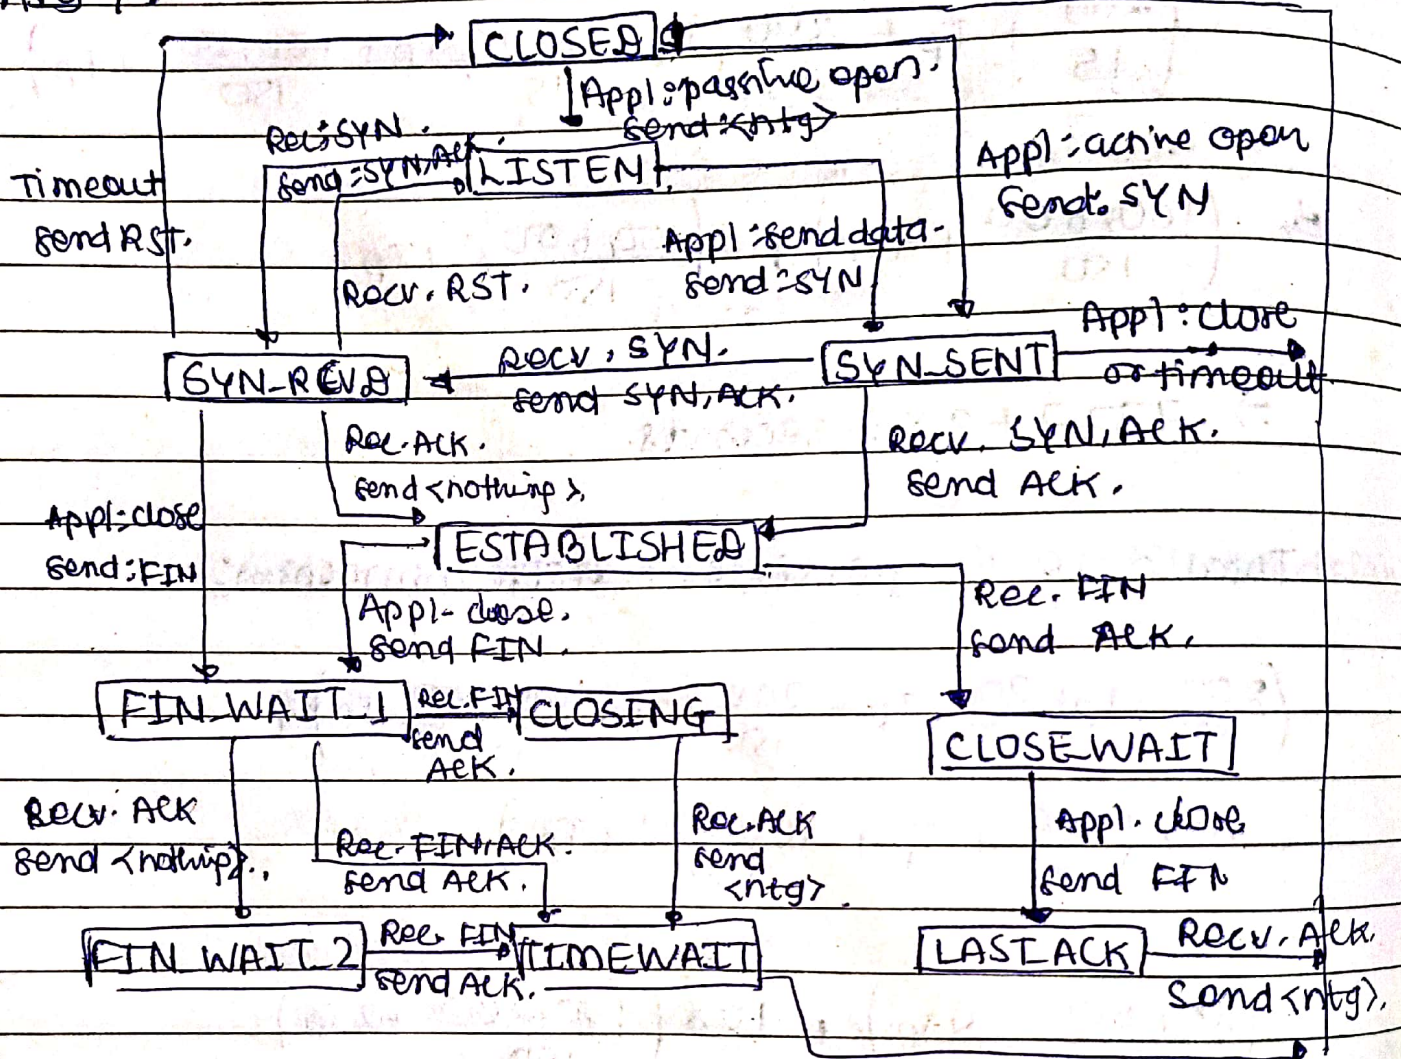 CLOSED
Appl:passive open.
send:<ntg>
Rec:SYN.
send:SYN,Ack.
LISTEN
Appl:active open
send: SYN
Timeout
send RST.
Appl:send data
send:SYN
Recv. RST.
Appl:close
or timeout
Recv, SYN.
send SYN, ACK.
SYN_RCVD
SYN_SENT
Rec. ACK.
send <nothing>.
Recv. SYN, ACK.
send ACK.
Appl:close
send:FIN
ESTABLISHED
Appl- close.
send FIN.
Rec. FIN
send ACK.
FIN_WAIT_1
Rec.FIN
send
ACK.
CLOSING
CLOSE_WAIT
Recv. ACK
send <nothing>.
Rec. FIN, ACK.
send ACK.
Rec.ACK
send
<ntg>.
Appl. close
send FIN
FIN_WAIT_2
Rec. FIN
send ACK.
TIMEWAIT
LAST_ACK
Recv. ACK.
Send <ntg>.